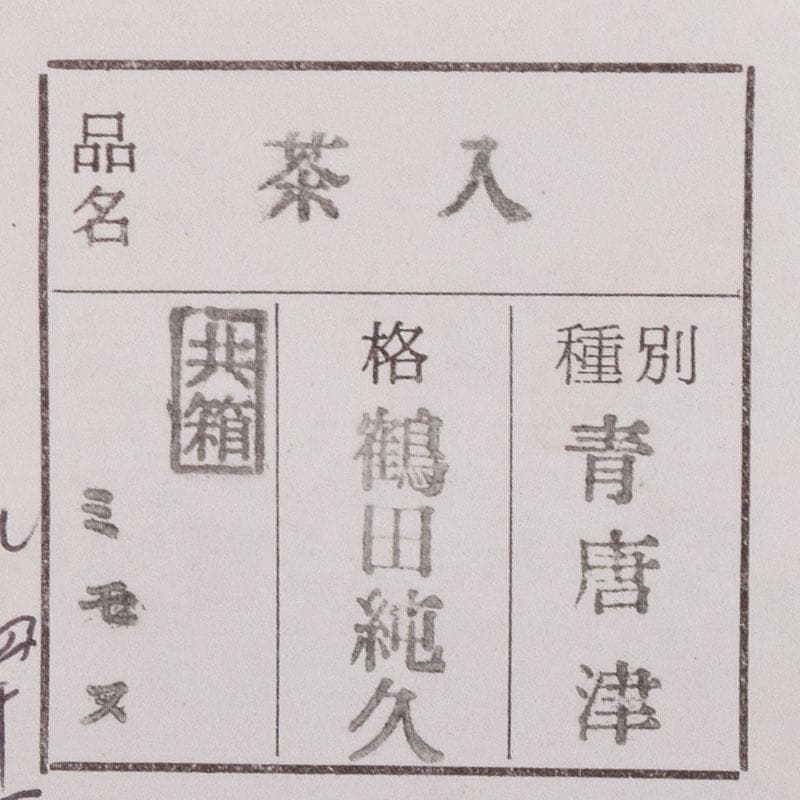 品名
茶入
種別
青唐津
格
鶴田純久
共箱
ミモス